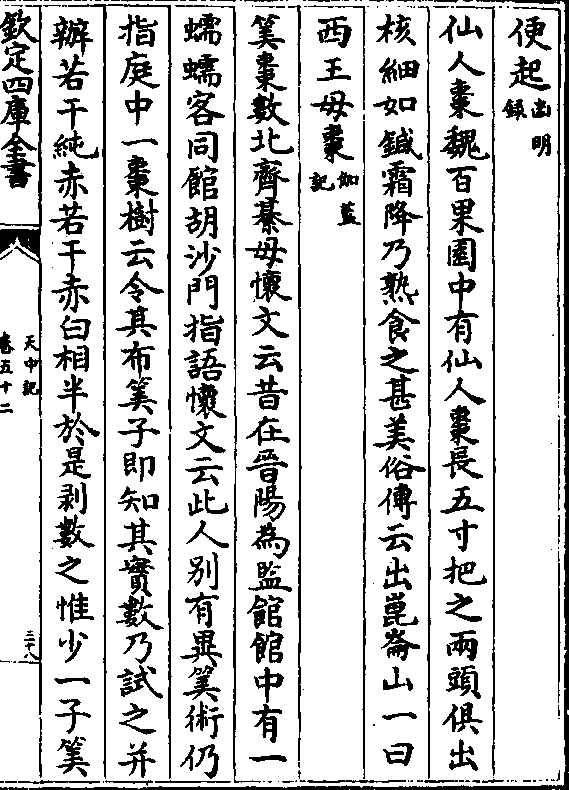 便起幽明録
仙人棗魏百果園中有仙人棗長五寸把之兩頭俱出
核細如鍼霜降乃熟食之甚美俗傳云出崑崙山一曰
西王母棗伽藍記
筭棗數北齊綦母懷文云昔在晉陽為監館館中有一
蠕蠕客同館胡沙門指語懷文云此人别有異筭術仍
指庭中一棗樹云令其布筭子即知其實數乃試之并
辦若干純赤若干赤白相半於是剥數之惟少一子筭
欽定四庫全書
天中記
卷五十二
三十八